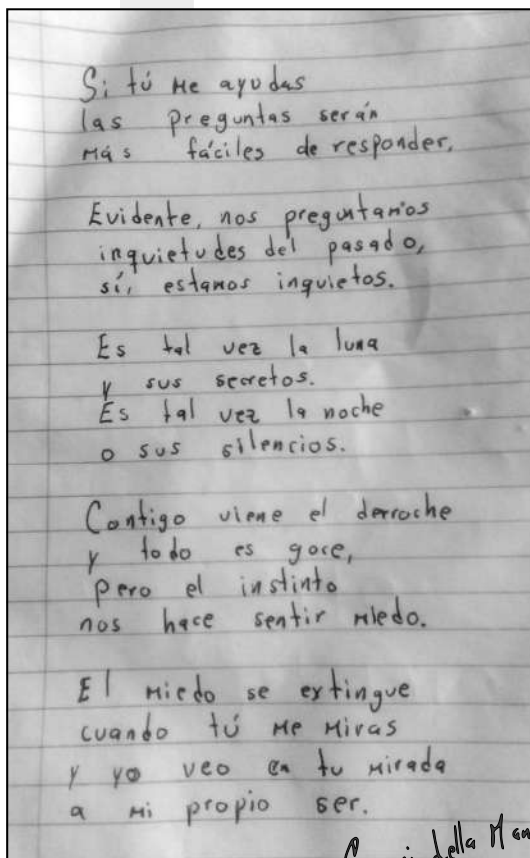 Si tú me ayudas
las preguntas serán
más fáciles de responder.
Evidente, nos preguntamos
inquietudes del pasado,
sí, estamos inquietos.
Es tal vez la luna
y sus secretos.
Es tal vez la noche
o sus silencios.
Contigo viene el derroche
y todo es goce,
pero el instinto
nos hace sentir miedo.
El miedo se extingue
cuando tú me miras
y yo veo en tu mirada
a mi propio ser.
della